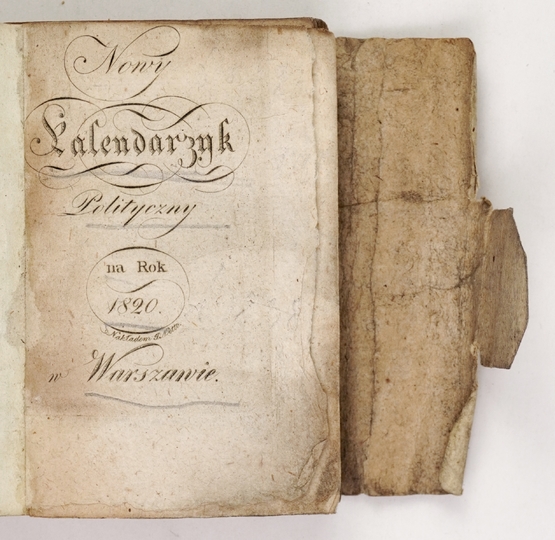 Nowy
Kalendarzyk
Polityczny
na Rok
1820.
Nakładem J. Netto
w Warszawie.